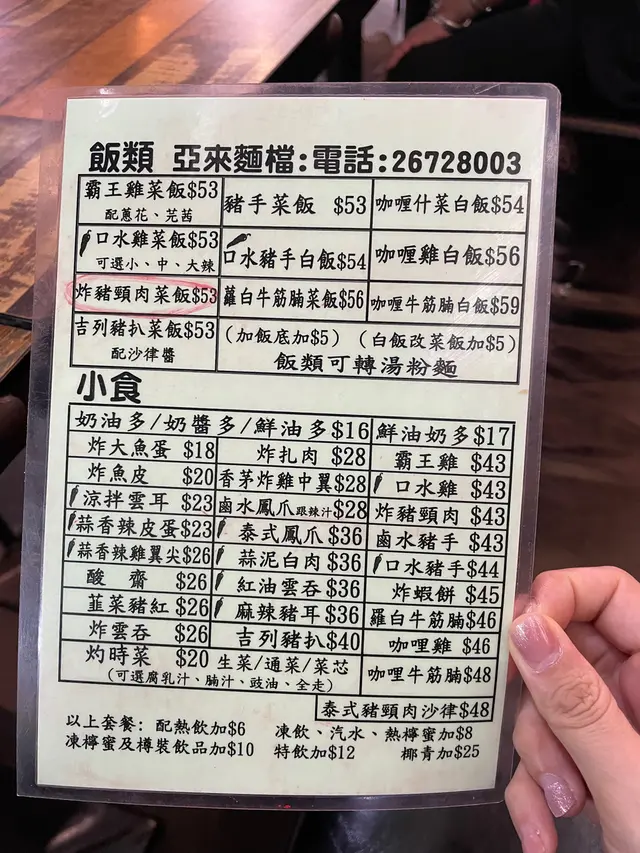 飯類 亞來麵檔:電話:26728003
霸王雞菜飯$53 豬手菜飯 $53 咖喱什菜白飯$54
配蔥花、芫茜
口水雞菜飯$53 口水豬手白飯$54 咖喱雞白飯$56
可選小、中、大辣
炸豬頸肉菜飯$53 蘿白牛筋腩菜飯$56 咖喱牛筋腩白飯$59
吉列豬扒菜飯$53 (加飯底加$5) (白飯改菜飯加$5)
配沙律醬 飯類可轉湯粉麵
小食
奶油多/奶醬多/鮮油多$16 鮮油奶多$17
炸大魚蛋 $18 炸扎肉 $28 霸王雞 $43
炸魚皮 $20 香茅炸雞中翼$28 口水雞 $43
涼拌雲耳 $23 鹵水鳳爪跟辣汁$28 炸豬頸肉 $43
蒜香辣皮蛋$23 泰式鳳爪 $36 鹵水豬手 $43
蒜香辣雞翼尖$26 蒜泥白肉 $36 口水豬手 $44
酸齋 $26 紅油雲吞 $36 炸蝦餅 $45
韮菜豬紅 $26 麻辣豬耳 $36 羅白牛筋腩$46
炸雲吞 $26 吉列豬扒 $40 咖哩雞 $46
灼時菜 $20 生菜/通菜/菜芯 咖哩牛筋腩$48
(可選腐乳汁、腩汁、豉油、全走)
泰式豬頸肉沙律$48
以上套餐: 配熱飲加$6 凍飲、汽水、熱檸蜜加$8
凍檸蜜及樽裝飲品加$10 特飲加$12 椰青加$25